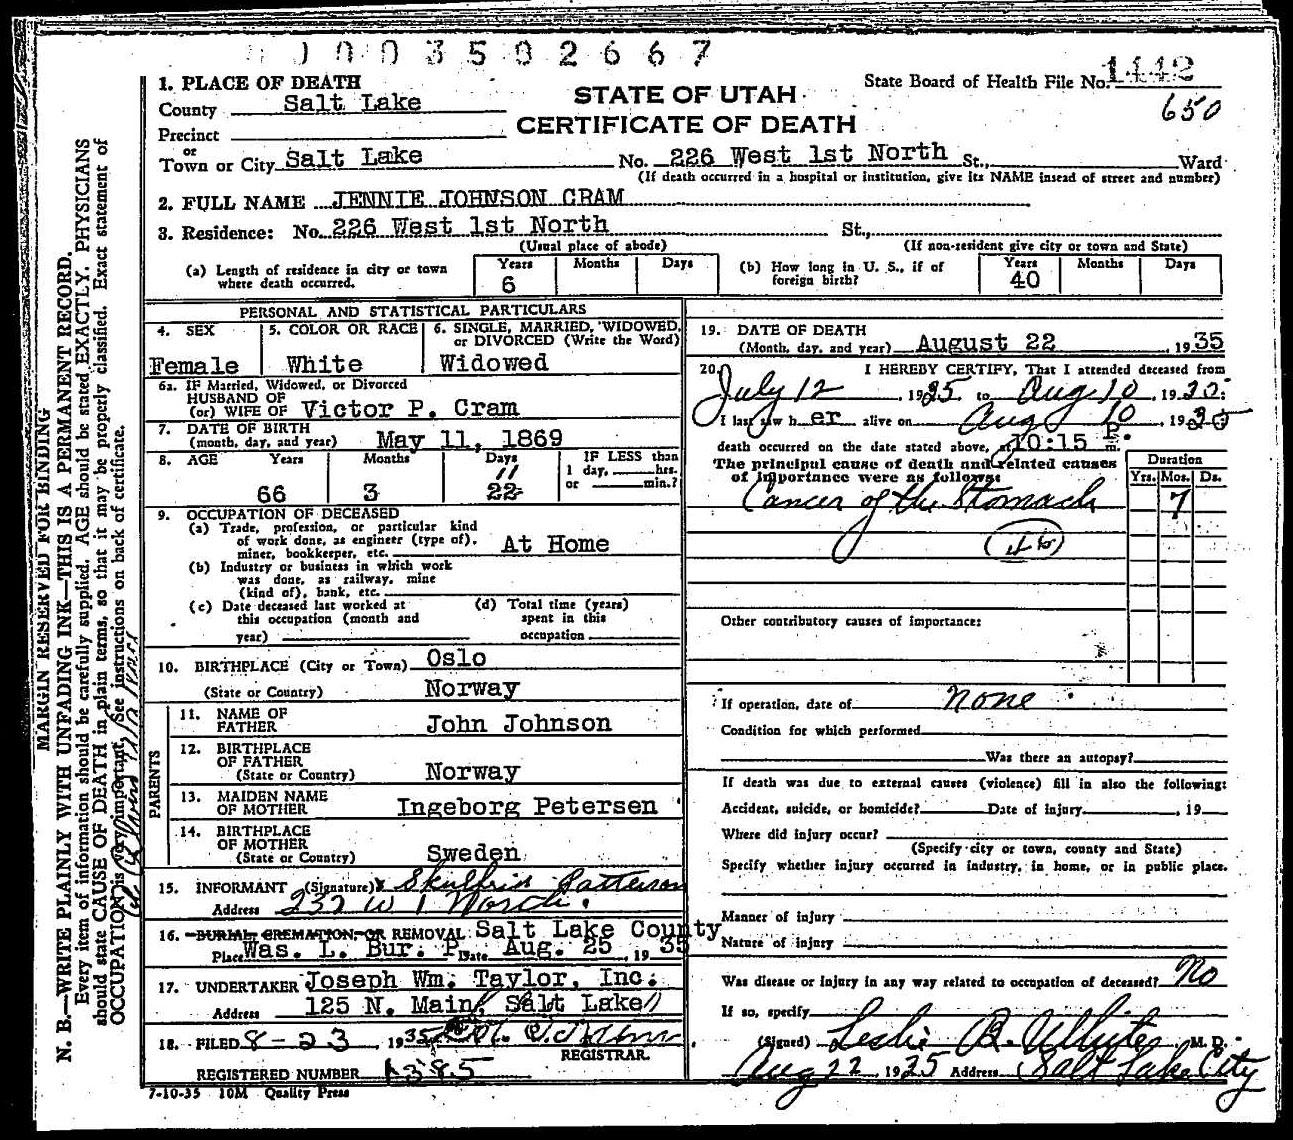 1003502667
1. PLACE OF DEATH
County Salt Lake
Precinct
or
Town or City Salt Lake
STATE OF UTAH
CERTIFICATE OF DEATH
State Board of Health File No. 1442
650
No. 226 West 1st North St., Ward
(If death occurred in a hospital or institution, give its NAME insead of street and number)
2. FULL NAME JENNIE JOHNSON CRAM
3. Residence: No. 226 West 1st North St.,
(Usual place of abode) (If non-resident give city or town and State)
(a) Length of residence in city or town where death occurred. Years 6 Months Days
(b) How long in U. S., if of foreign birth? Years 40 Months Days
PERSONAL AND STATISTICAL PARTICULARS
4. SEX Female
5. COLOR OR RACE White
6. SINGLE, MARRIED, WIDOWED, or DIVORCED (Write the Word) Widowed
6a. IF Married, Widowed, or Divorced
HUSBAND OF
(or) WIFE OF Victor P. Cram
7. DATE OF BIRTH
(month, day, and year) May 11, 1869
8. AGE Years 66 Months 3 Days 11 22
IF LESS than 1 day, hrs. or min.?
9. OCCUPATION OF DECEASED
(a) Trade, profession, or particular kind
of work done, as engineer (type of),
miner, bookkeeper, etc. At Home
(b) Industry or business in which work
was done, as railway, mine
(kind of), bank, etc.
(c) Date deceased last worked at
this occupation (month and
year)
(d) Total time (years)
spent in this
occupation
10. BIRTHPLACE (City or Town) Oslo
(State or Country) Norway
PARENTS
11. NAME OF
FATHER John Johnson
12. BIRTHPLACE
OF FATHER
(State or Country) Norway
13. MAIDEN NAME
OF MOTHER Ingeborg Petersen
14. BIRTHPLACE
OF MOTHER
(State or Country) Sweden
15. INFORMANT (Signature) x Skulfrid Patterson
Address 232 W 1 North.
16. BURIAL, CREMATION, OR REMOVAL Salt Lake County
Place Was. L. Bur. P. Date Aug. 25, 1935
17. UNDERTAKER Joseph Wm. Taylor, Inc.
Address 125 N. Main, Salt Lake
18. FILED 8-23, 1935
REGISTRAR.
REGISTERED NUMBER 1385
7-10-35 10M Quality Press
19. DATE OF DEATH
(Month, day, and year) August 22, 1935
20. I HEREBY CERTIFY, That I attended deceased from
July 12, 1935 to Aug 10, 1935
I last saw her alive on Aug 10, 1935
death occurred on the date stated above, at 10:15 P. m.
The principal cause of death and related causes
of importance were as follows:
Duration
Yrs. Mos. Ds.
Cancer of the Stomach 7
Other contributory causes of importance:
If operation, date of none
Condition for which performed
Was there an autopsy?
If death was due to external causes (violence) fill in also the following:
Accident, suicide, or homicide? Date of injury, 19
Where did injury occur?
(Specify city or town, county and State)
Specify whether injury occurred in industry, in home, or in public place.
Manner of injury
Nature of injury
Was disease or injury in any way related to occupation of deceased? No
If so, specify
(Signed) Leslie B. White, M. D.
Aug 22, 1935 Address Salt Lake City
MARGIN RESERVED FOR BINDING
N. B.—WRITE PLAINLY WITH UNFADING INK—THIS IS A PERMANENT RECORD.
Every item of information should be carefully supplied. AGE should be stated EXACTLY. PHYSICIANS
should state CAUSE OF DEATH in plain terms, so that it may be properly classified. Exact statement of
OCCUPATION is very important. See instructions on back of certificate.